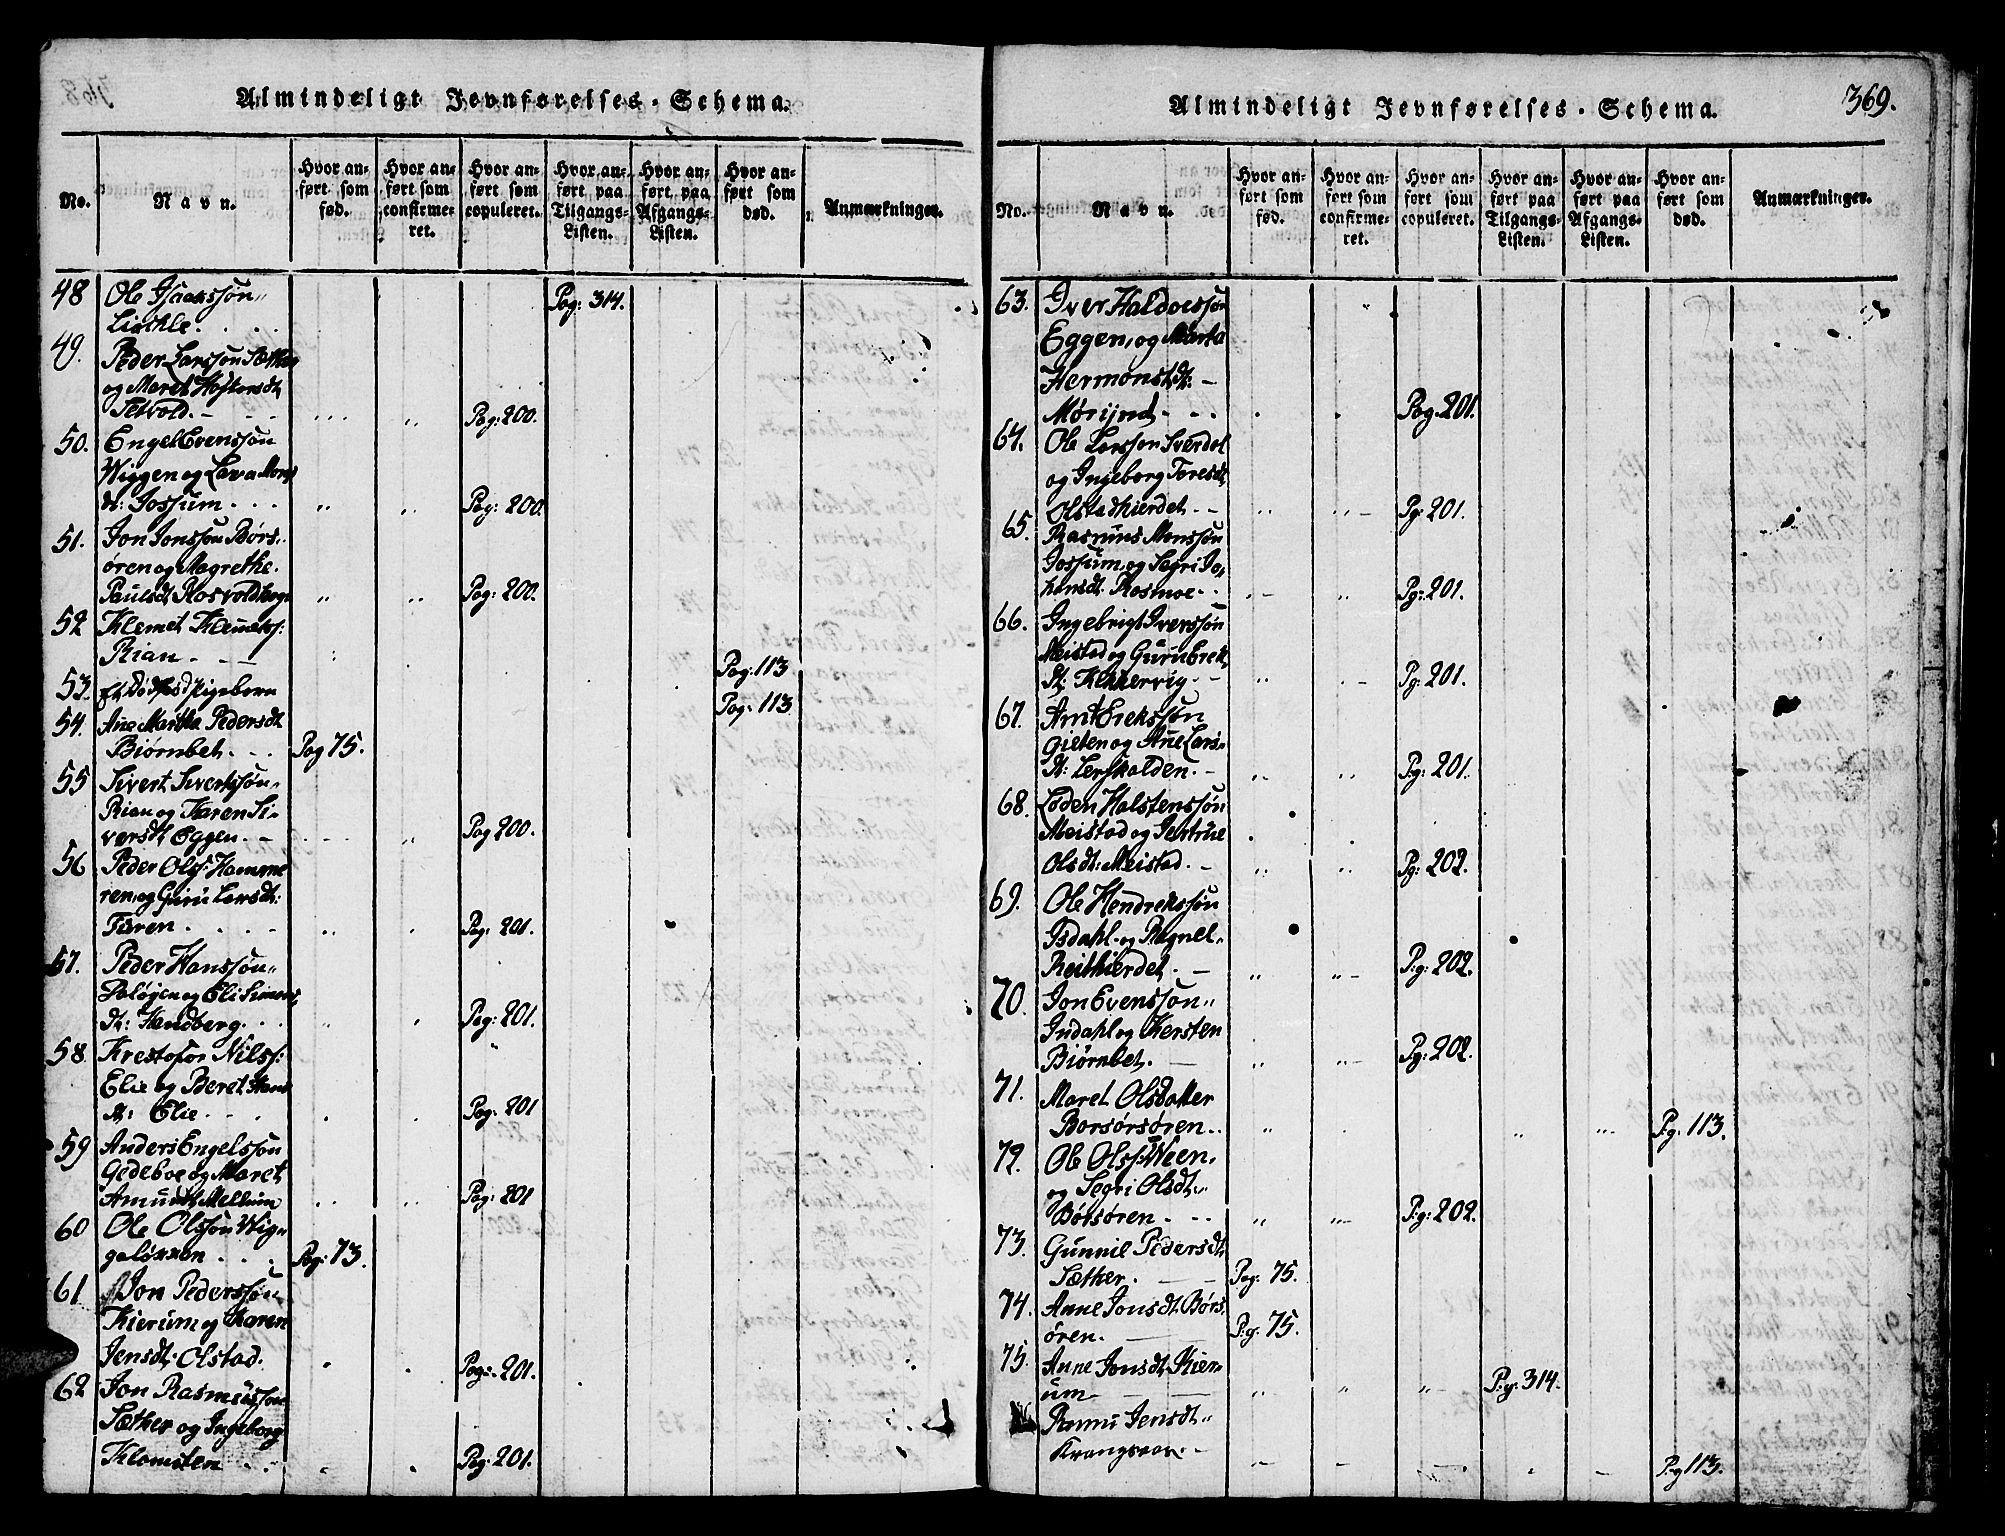 Almindeligt Jevnførelses-Schema.
No.
Navn.
Hvor an-
ført som
fød.
Hvor an-
ført som
confirme-
ret.
Hvor an-
ført som
copuleret.
Hvor an-
ført paa
Tilgangs-
Listen.
Hvor an-
ført paa
Afgangs-
Listen.
Hvor an-
ført som
død.
Anmærkninger.
48 Ole Isaakssøn
Pag: 314.
49. Peder Larssøn Sæther
og Maret
Pag: 200.
50. Engel Evenssøn
Wiggen og Mons
dt: Jossum Pag: 200.
51. Jon Jonssøn Børs-
øren og Magrethe
Paulsdt. Pag: 200.
52 Klemet
Rian. Pag: 113
53. Et Dødfød Pigebarn Pag: 113
54. Ane Martha Pedersdt
Biørnbet. Pag 75.
55 Sivert Sivertssøn
Rian og Karen Si-
versdt. Eggen. Pag 200.
56 Peder Ols: Hamme
ren og Guru Larsdt:
Furen Pag: 201.
57. Peder Hanssøn
og Eli Simens
dt: Handberg. Pag: 201.
58. Krestofor Nilss:
Elie og Beret Hans
dt: Elie. Pag: 201
59 Anders Engelssøn
Gedeboe og Maret
Mellum Pag: 201
60 Ole Olssøn Wig-
Pag: 73.
61 Jon Pederssøn
Kierum og Karen
Jensdt. Olstad. Pag: 201.
62 Jon Rasmussøn
Sæther og Ingeborg
Klomsten Pag: 201.
Almindeligt Jevnførelses-Schema.
369.
No.
Navn.
Hvor an-
ført som
fød.
Hvor an-
ført som
confirme-
ret.
Hvor an-
ført som
copuleret.
Hvor an-
ført paa
Tilgangs-
Listen.
Hvor an-
ført paa
Afgangs-
Listen.
Hvor an-
ført som
død.
Anmærkninger.
63. Iver
Eggen, og Marta
Hermonsdt:
Pag. 201.
64. Ole Larssøn Sverdol
og Ingeborg Toresdt
Olstadhierdet Pg: 201.
65. Rasmus Monssøn
Jossum, og Segri Jo-
hansdt. Rosmoe Pg: 201.
66. Ingebrigt Iverssøn
Meistad og Guru Erek
dt: Kekkervig. Pg: 201.
67. Arnt Erekssøn
Gieten og Ane Lars-
dt: Lerskolden. Pg: 201.
68. Loden Halstenssøn
Meistad og Jertrue
Olsdt: Meistad. Pg: 202.
69. Ole Hendrekssøn
Isdahl og Ragnel
Reithierdet. P:g: 202.
70. Jon Evenssøn
Indahl og Kersten
Biørnbet. Pg: 202.
71. Maret Olsdatter
Borsørsøren. P:g. 113.
72. Ole Olss: Ween,
og Segri Olsdt.
Bøtsøren P:g: 202.
73. Gunnil Pedersdt
Sæther. Pag: 75.
74. Anne Jonsdt. Børs-
øren. P:g. 75.
75. Anne Jonsdt. Kier-
um P:g. 314.
Jensdt.
P:g 113.